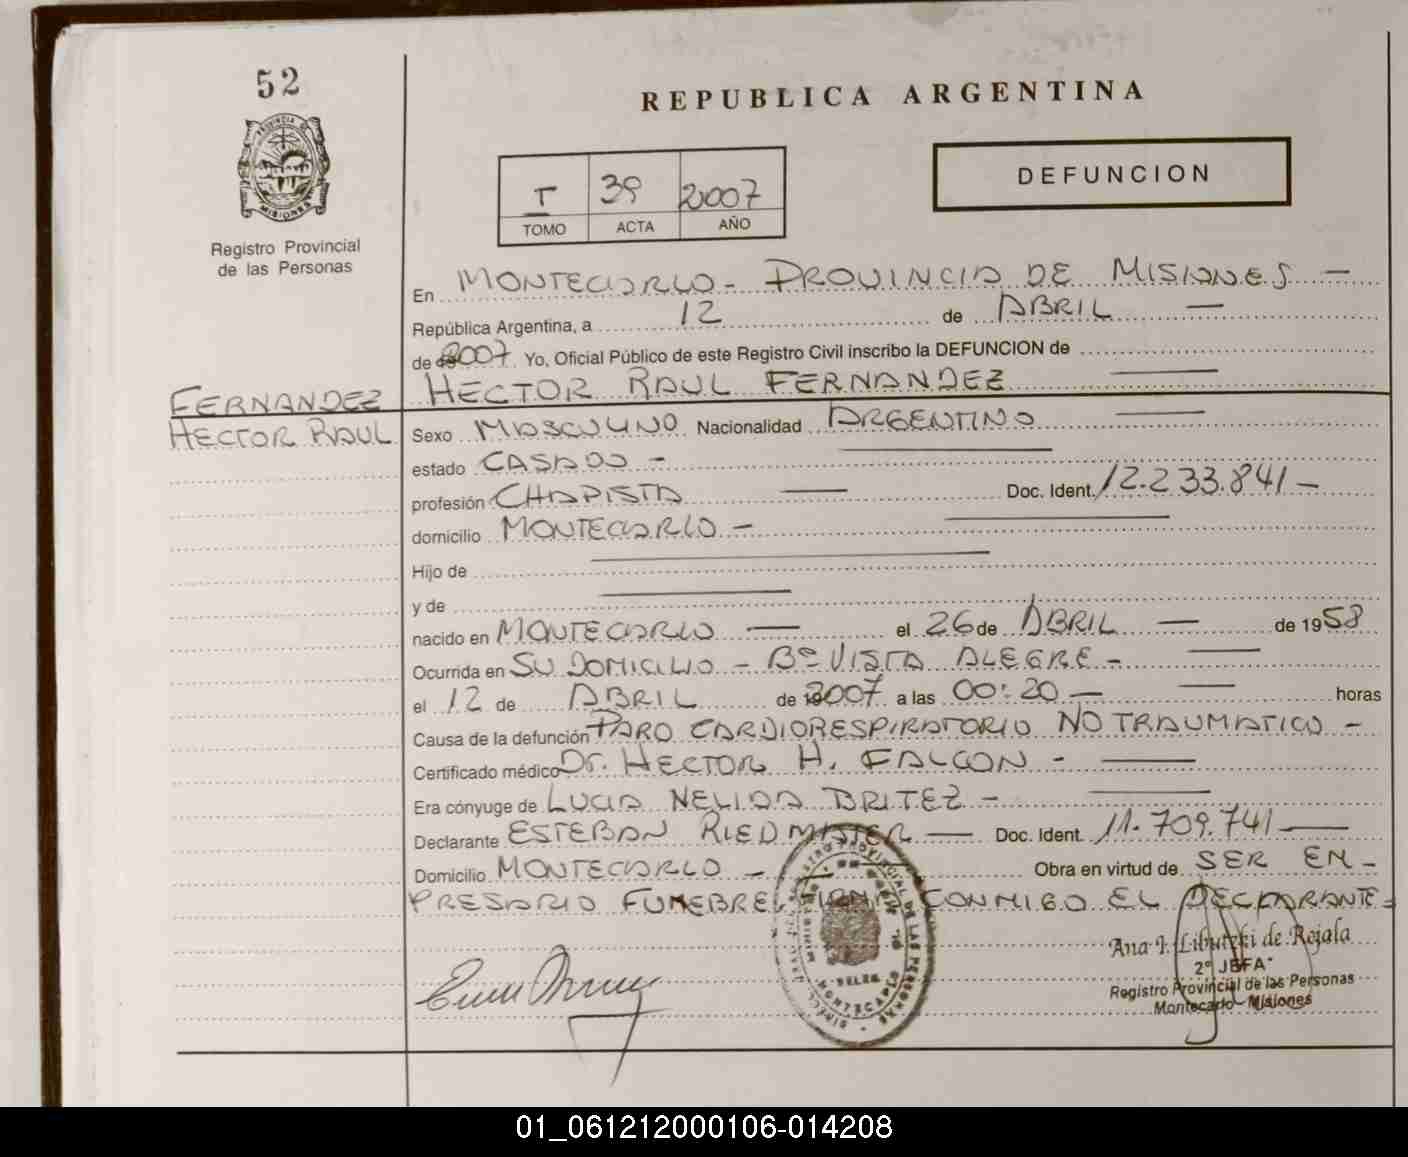 52
PROVINCIA DE
MISIONES
Registro Provincial
de las Personas
REPUBLICA ARGENTINA
T 39 2007
TOMO ACTA AÑO
DEFUNCION
En MONTECARLO - PROVINCIA DE MISIONES -
República Argentina, a 12 de ABRIL -
de 2007 Yo, Oficial Público de este Registro Civil inscribo la DEFUNCION de
HECTOR RAUL FERNANDEZ
FERNANDEZ
HECTOR RAUL
Sexo MASCULINO Nacionalidad ARGENTINO
estado CASADO -
profesión CHAPISTA Doc. Ident. 12.233.841 -
domicilio MONTECARLO -
Hijo de
y de
nacido en MONTECARLO - el 26 de ABRIL - de 1958
Ocurrida en SU DOMICILIO - Bº VISTA ALEGRE -
el 12 de ABRIL de 2007 a las 00:20 - horas
Causa de la defunción PARO CARDIORESPIRATORIO NO TRAUMATICO -
Certificado médico Dr. HECTOR H. FALCON -
Era cónyuge de LUCIA NELIDA BRITEZ -
Declarante ESTEBAN RIEDMAIER - Doc. Ident. 11.709.741 -
Domicilio MONTECARLO - Obra en virtud de SER EM-
PRESARIO FUNEBRE, CONMIGO EL DECLARANTE
Ana I. Libutzki de Rojala
2º JEFA
Registro Provincial de las Personas
Montecarlo - Misiones
01_061212000106-014208